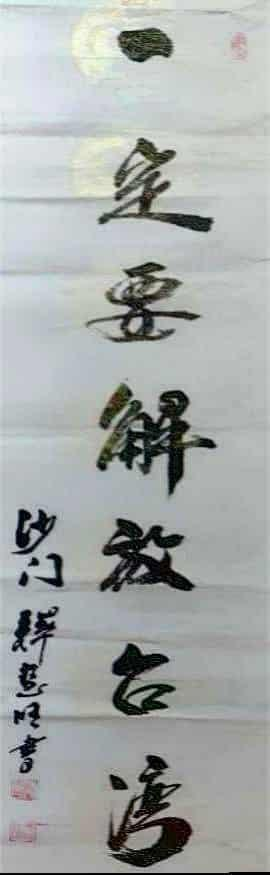 一定要解放台湾
沙门释慧旺書